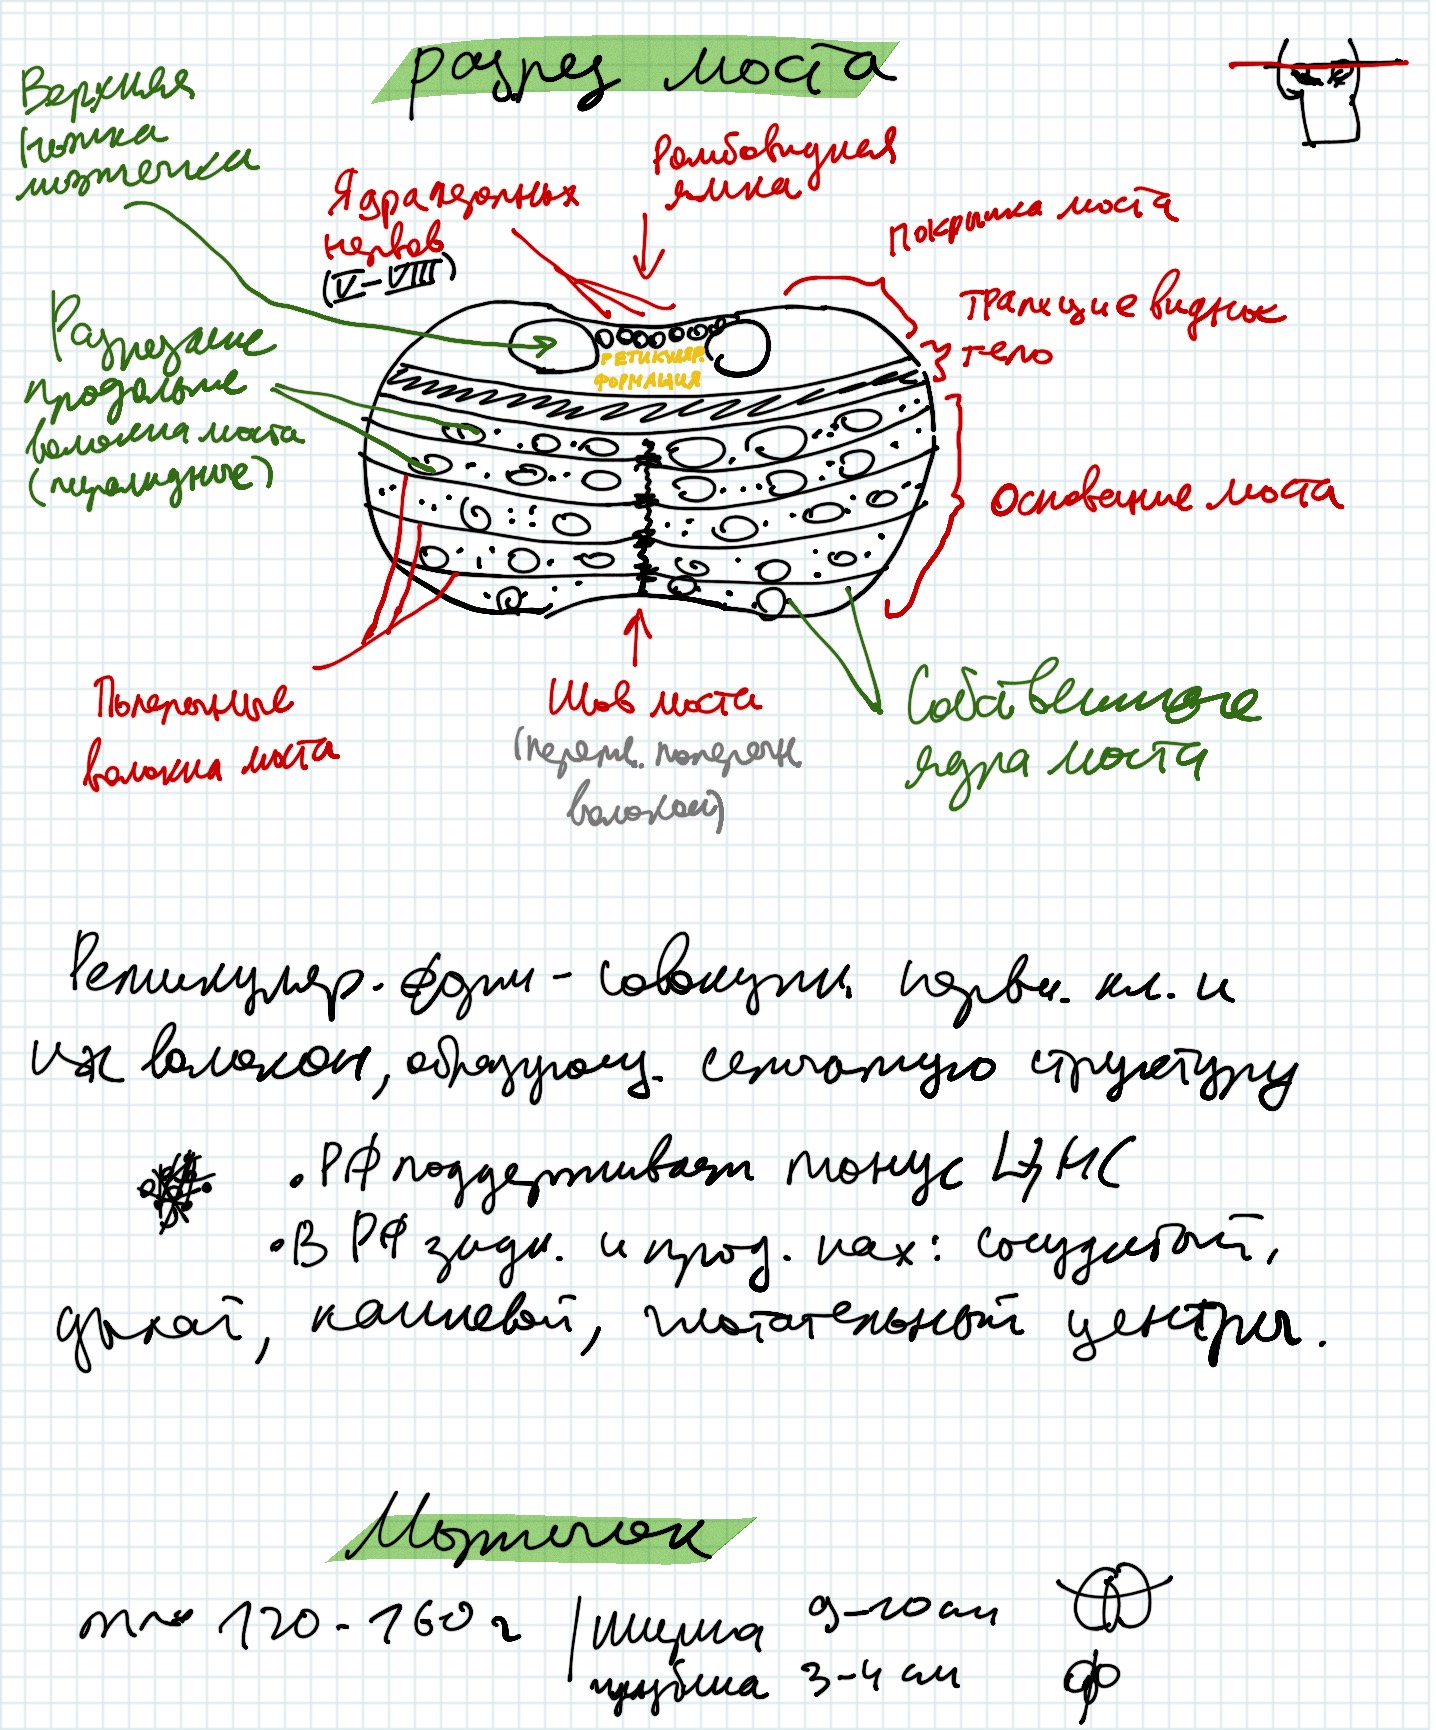 разрез моста
Верхняя
ножка
мозжечка
Ядра черепных
нервов
(V-VIII)
Ромбовидная
ямка
Покрышка моста
Трапециевидное
тело
Разрезание
продольные
волокна моста
(пирамидные)
РЕТИКУЛЯР.
ФОРМАЦИЯ
Основание моста
Поперечные
волокна моста
Шов моста
(перепл. поперечн.
волокон)
Собственные
ядра моста
Ретикуляр. форм - совокупн. нервн. кл. и
их волокон, образующ. сетчатую структуру
• РФ поддерживает тонус ЦНС
• В РФ задн. и прод. нах: сосудистый,
дыхат, кашлевой, глотательный центры.
Мозжечок
m ~ 120-160 г
Ширина 9-10 см
глубина 3-4 см